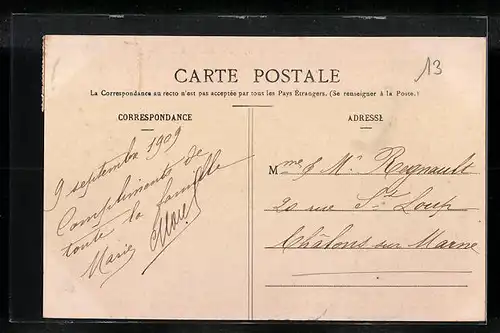 13
CARTE POSTALE
La Correspondance au recto n'est pas acceptée par tous les Pays Étrangers. (Se renseigner à la Poste.)
CORRESPONDANCE
9 septembre 1909
Compliments de
toute la famille
Marie
ADRESSE
Mme & Mr Regnault
20 rue St Loup
Châlons sur Marne